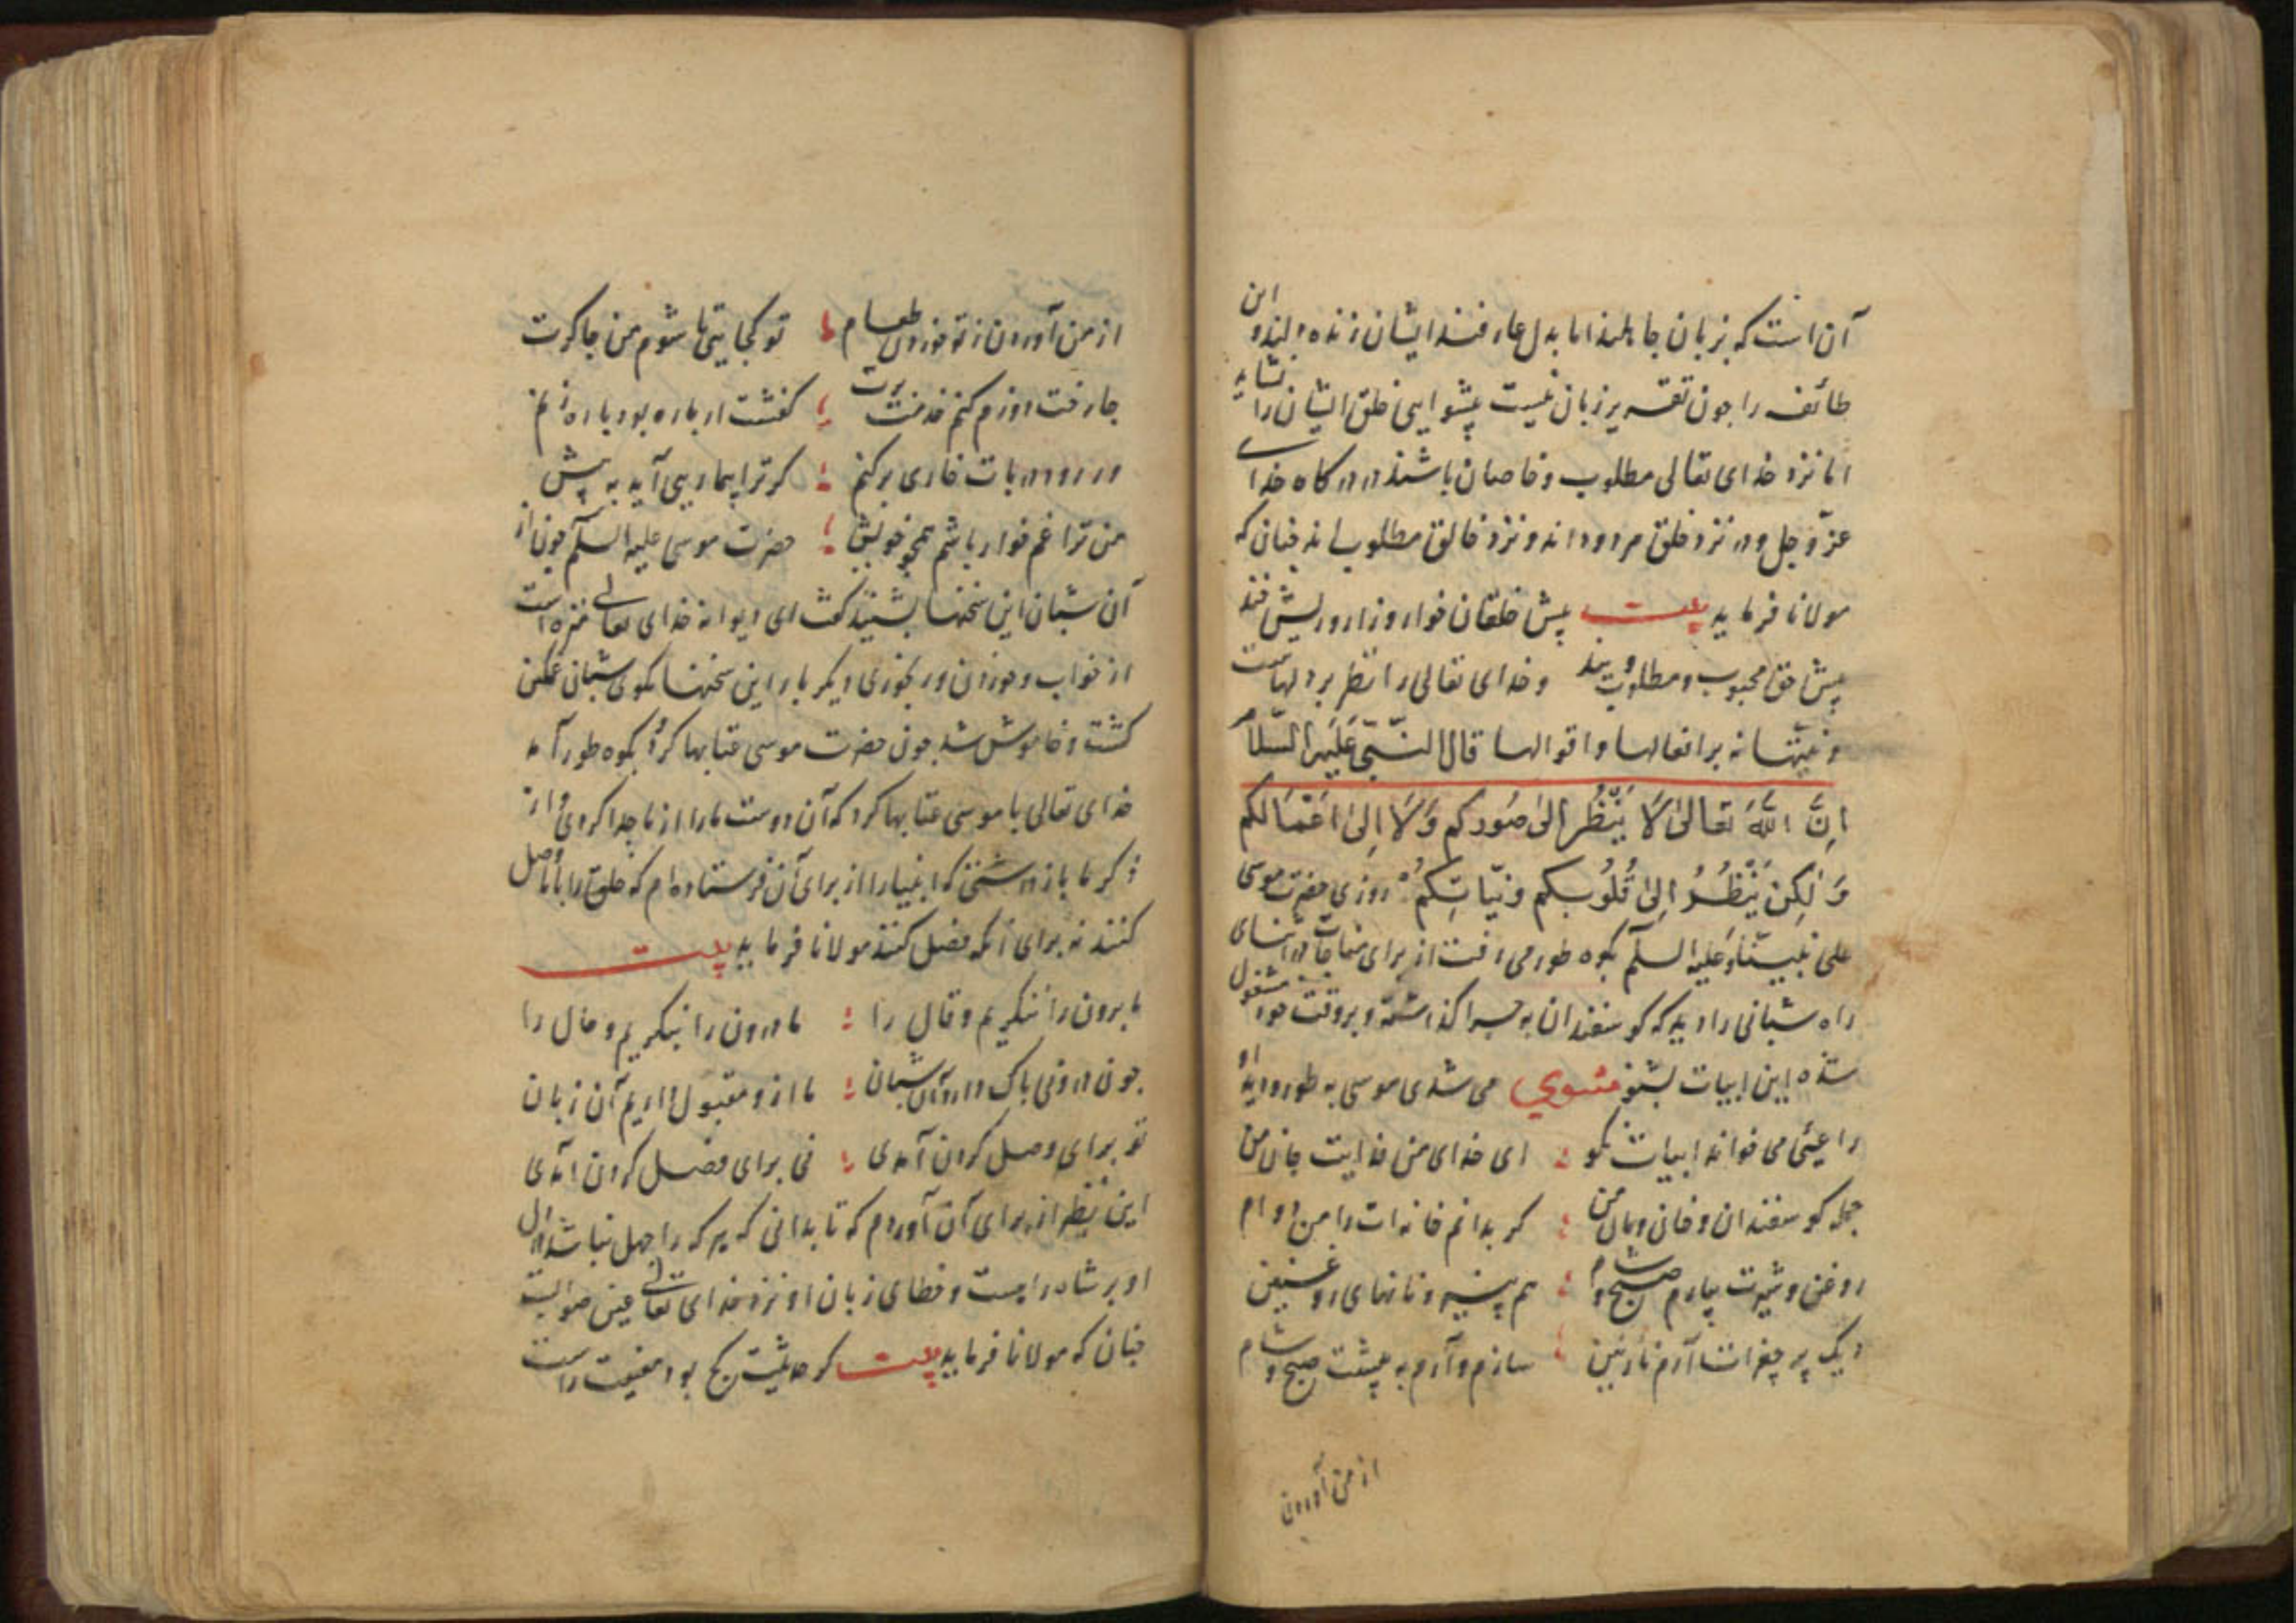 آن است که بزبان جاهلند اما بدل عارفند ایشان زنده دلند و این
طائفه را چون تقریر زبان نیست پیشوایی خلق ایشان را نشاید
اما نزد خدای تعالی مطلوب و خاصان باشند در درکاه خدای
عز و جل و در نزد خلق مردودانه و نزد خالق مطلوب اند چنان که
مولانا فرماید بیت پیش خلقان خوار و زار و ریش خند
پیش حق محبوب و مطلوب و پسند و خدای تعالی را نظر بر دلهاست
و نیتها نه بر افعالها و اقوالها قال النبی علیه السلام
اِنَّ اللهَ تعالیٰ لَا یَنْظُرُ اِلیٰ صُوَرِکم وَلَا اِلیٰ اَعْمَالکم
وَلٰکِن یَنْظُرُ اِلیٰ قُلُوبِکم وَنیّاتِکم روزی حضرت موسی
علی نبینا وعلیه السلام بکوه طور می رفت از برای مناجات در اثنای
راه شبانی را دید که کوسفندان به چرا کذاشته و بروقت خود مشغول
شده این ابیات بشنو مثنوی می شدی موسی به طور و دید او
راعیئی می خواند ابیات نکو : ای خدای من فدایت جان من
جمله کوسفندان و خان و مان من : کر بدانم خانه ات را من دوام
روغن و شیرت بیارم صبح و شام : هم پنیر و نانهای روغنین
دیک پر چغرات آرم نازنین : سازم و آرم به پیشت صبح و شام
از من آوردن
از من آوردن ز تو خوردن طعام : تو کجایی تا شوم من چاکرت
جارقت دوزم کنم خدمت برت : کفشت ار پاره بود پاره زنم
ور رود در پات خاری برکنم : کر ترا بیماریی آید به پیش
من ترا غم خوار باشم همچو خویش : حضرت موسی علیه السلام چون از
آن شبان این سخنها بشنید کفت ای دیوانه خدای تعالی منزه است
از خواب و خوردن و رنجوری دیکر بار این سخنها مکوی شبان غمکین
کشت و خاموش شد چون حضرت موسی عتابها کرد بکوه طور آمد
خدای تعالی با موسی عتابها کرد که آن دوست ما را از ما جدا کردی و از
ذکر ما بازداشتی که انبیا را از برای آن فرستاده ام که خلق را با ما وصل
کنند نه برای آنکه فصل کنند مولانا فرماید بیت
ما برون را ننکریم و قال را : ما درون را بنکریم و حال را
چون درونی پاک دارد آن شبان : ما ازو مقبول داریم آن زبان
تو برای وصل کردن آمدی : نی برای فصل کردن آمدی
این نظر از برای آن آوردم که تا بدانی که هر که را جهل نباشد دل
او بر شاه راهست و خطای زبان او نزد خدای تعالی عین صوابست
چنان که مولانا فرماید بیت کر حدیثت کج بود معنیت راست